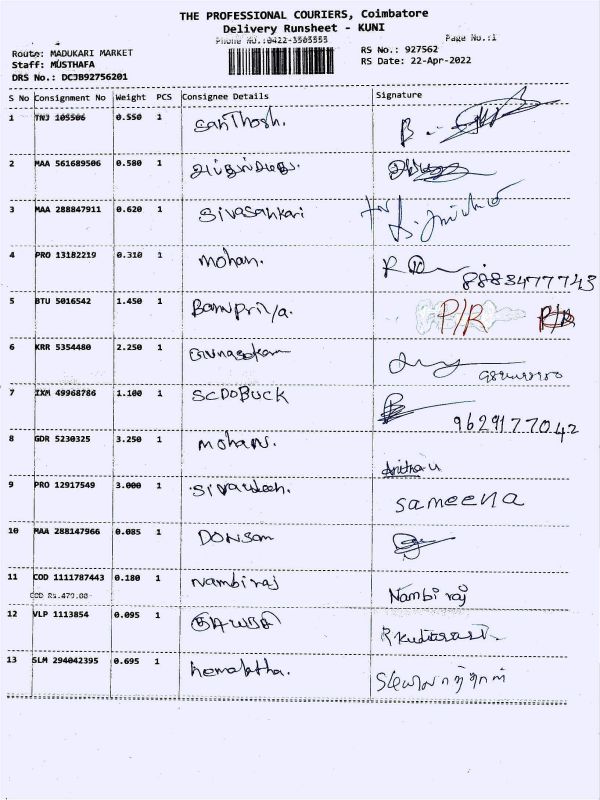 THE PROFESSIONAL COURIERS, Coimbatore
Delivery Runsheet - KUNI
Phone NO.:0422-3503555 Page No.:1
Route: MADUKARI MARKET RS No.: 927562
Staff: MUSTHAFA RS Date: 22-Apr-2022
DRS No.: DCJB92756201
S No Consignment No Weight PCS Consignee Details Signature
1 TNJ 105506 0.550 1 Santhosh.
2 MAA 561689506 0.580 1
3 MAA 288847911 0.620 1 Sivasankari
4 PRO 13182219 0.310 1 mohan. 8883477743
5 BTU 5016542 1.450 1 Banupriya. P/R P/R
6 KRR 5354480 2.250 1 Gunasekaran
7 IXM 49968786 1.100 1 SCDOBUCK 9629177042
8 GDR 5230325 3.250 1 mohan. Anitha
9 PRO 12917549 3.000 1 Sameena
10 MAA 288147966 0.085 1 DONSOM
11 COD 1111787443 0.180 1 Nambiraj Nambiraj
COD Rs.479.00
12 VLP 1113854 0.095 1
13 SLM 294042395 0.695 1 hemalatha.